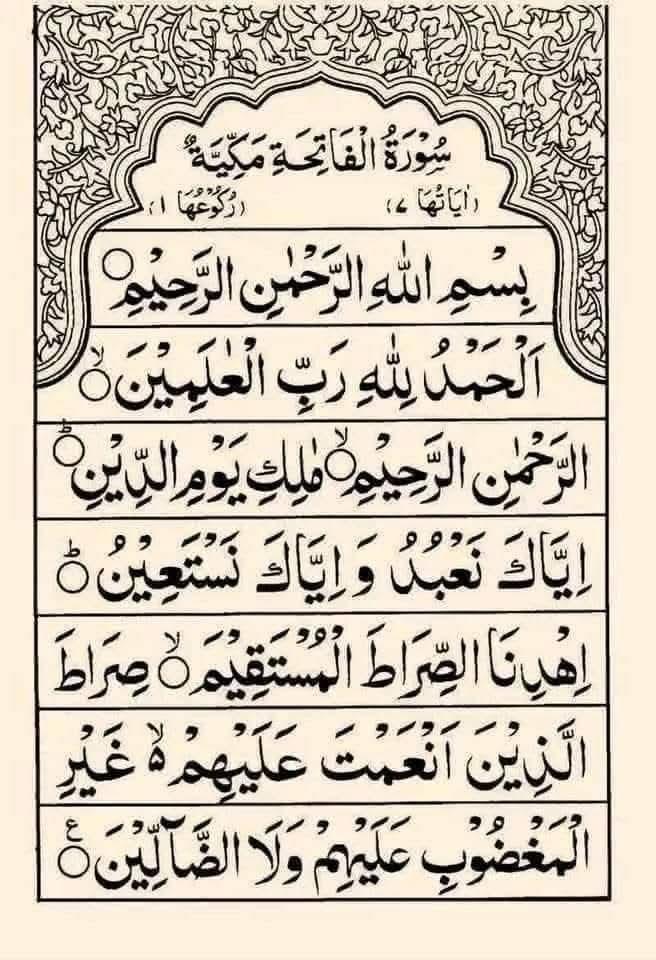 سُوْرَةُ الْفَاتِحَةِ مَكِّيَّةٌ
(اٰيَاتُهَا ٧) (رُكُوْعُهَا ١)
بِسْمِ اللهِ الرَّحْمٰنِ الرَّحِيْمِ ○
اَلْحَمْدُ لِلّٰهِ رَبِّ الْعٰلَمِيْنَ ○ۙ
الرَّحْمٰنِ الرَّحِيْمِ ○ۙ مٰلِكِ يَوْمِ الدِّيْنِ ○ؕ
اِيَّاكَ نَعْبُدُ وَ اِيَّاكَ نَسْتَعِيْنُ ○ؕ
اِهْدِنَا الصِّرَاطَ الْمُسْتَقِيْمَ ○ۙ صِرَاطَ
الَّذِيْنَ اَنْعَمْتَ عَلَيْهِمْ ۙ۬ غَيْرِ
الْمَغْضُوْبِ عَلَيْهِمْ وَلَا الضَّآلِّيْنَ ○ع